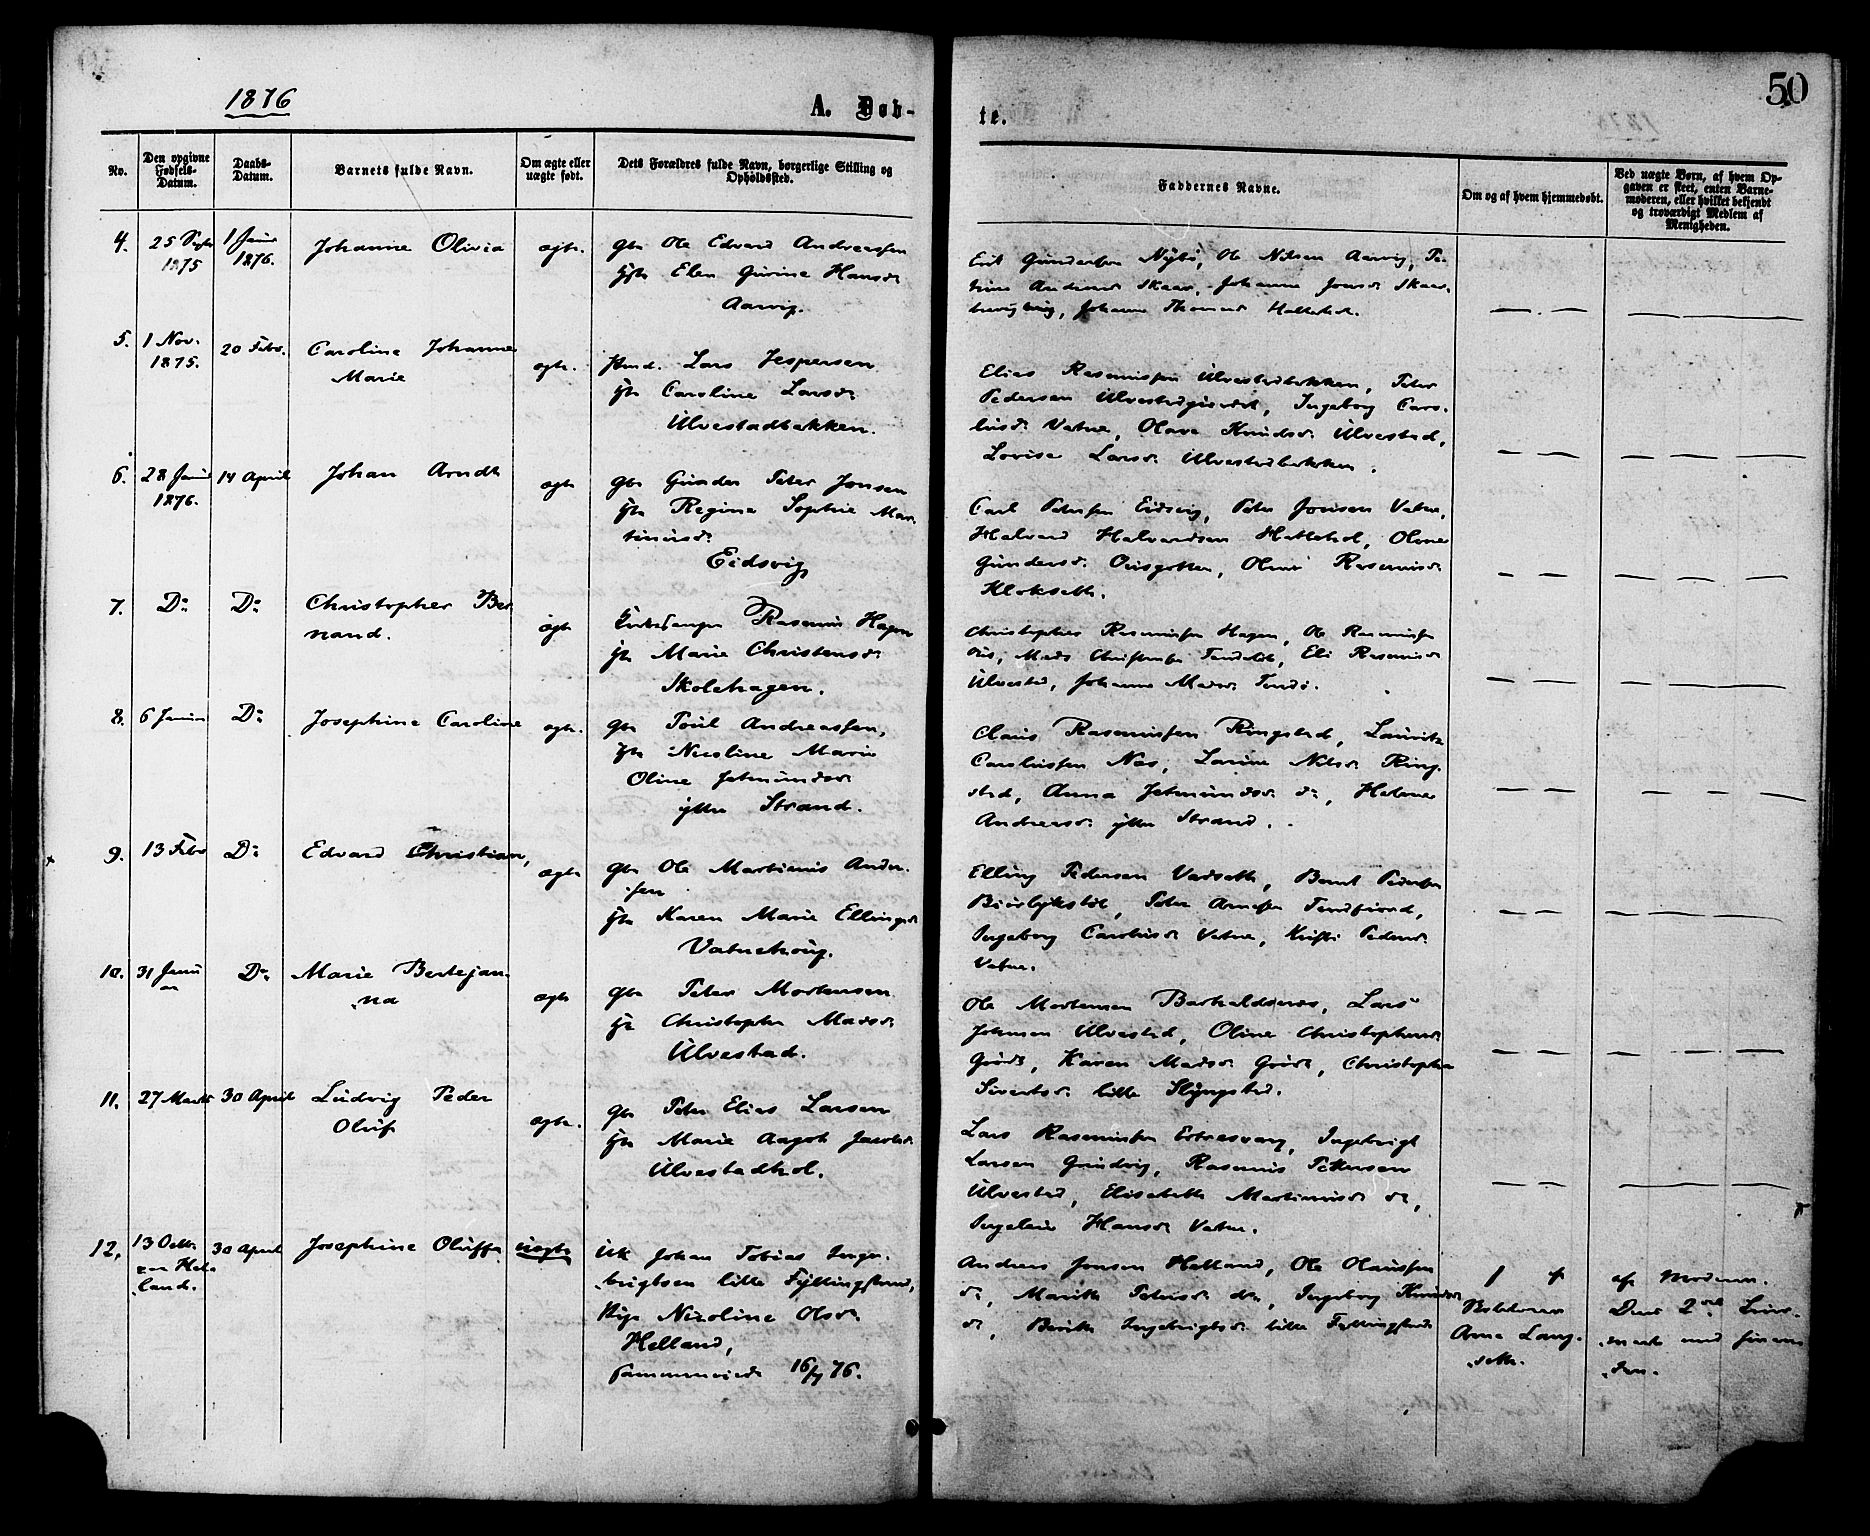 1876
A. Døb-
te.
50
No.
Den opgivne
Fødsels-
Datum.
Daabs-
Datum.
Barnets fulde Navn.
Om ægte eller
uægte født.
Dets Forældres fulde Navn, borgerlige Stilling og
Opholdssted.
Faddernes Navne.
Om og af hvem hjemmedøbt.
Ved uægte Børn, af hvem Op-
gaven er skeet, enten Barne-
moderen, eller hvilket bekjendt
og troværdigt Medlem af
Menigheden.
4.
25 Septr
1875
1 Janr
1876.
Johanne Olivia
ægte.
Gbr Ole Edvard Andreassen
Elen Gurine Hansdr
Aarvig.
Erik Gundersen Nybø, Ole Nilsen Aarvig,
Johanne
5.
1 Nov.
1875.
20 Febr.
Caroline Johanne
Marie
ægte.
Lars Jespersen
Caroline Larsdr
Ulvestadbakken.
Elias Rasmussen Ulvestadbakken, Peter
Pedersen Ulvestad, Ingeborg Caro-
lusdr Vatne, Olave Knudsdr Ulvestad,
Lovise Larsdr Ulvestadbakken.
6.
28 Janr
1876.
14 April
Johan Arndt
ægte
Gbr Gunder Peter Jonsen
Regine Sophie Mar-
tinusdr
Eidsvig
Carl Petersen Eidsvig, Peter Jonsen Vatne,
Halvard Halvardsen Hattehol, Oline
Gundersdr, Rasmusdr
Klokseth.
7.
Do
Do
Christopher Ber-
nand.
ægte
Kirkesanger Rasmus Hagen
Marie Christensdr
Skolehagen.
Christopher Rasmussen Hagen, Ole Rasmussen
Mads Christensen, Eli Rasmusdr
Ulvestad, Johanne Madsdr
8.
6 Januar
Do
Josephine Caroline
ægte.
Gbr Poul Andreassen,
Nicoline Marie
Oline Jetmundsdr
ytre Strand.
Claus Rasmussen Ringstad, Lauritz
Carolussen Næs, Larine Nilsdr Ring-
stad, Anna Jetmundsdr do, Helene
Andreasdr ytre Strand.
9.
13 Febr
Do
Edvard Christian,
ægte
Gbr Ole Martinus Ander-
sen
Karen Marie Ellingsdr
Vatnehoug.
Elling Pedersen Vadseth, Bernt Pedersen
Peter Arnesen Tennfjord,
Ingeborg Carolusdr Vatne, Kristi Pedersdr
Vatne.
10.
31 Janu
ar
Do
Marie Bertejan-
na
ægte
Gbr Peter Mortensen
Christophe Madsdr
Ulvestad.
Ole Mortensen Barhaldsnæs, Lars
Johnsen Ulvestad, Oline Christophersdr
Grøda, Karen Madsdr Grøda, Christophe
Sivertsdr lille Slyngstad.
11.
27 Marts
30 April
Ludvig Peder
Oluf
ægte.
Gbr Peter Elias Larsen
Marie Aagot Jacobsdr
Ulvestadhol.
Lars Rasmussen Ertresvaag, Ingebrigt
Larsen Grindvig, Rasmus Pettersen
Ulvestad, Elisabeth Martinusdr do,
Hansdr Vatne.
12.
13 Octbr
paa Hel-
land.
30 April
Josephine Oluffa
uægte
Uk Johan Tobias Inge-
brigtsen lille Fyllingsland,
Pige Nicoline Olsdr
Helland,
16/7 76.
Andreas Jonsen Helland, Ole Olaussen
do, Marith Petersdr do, Ingeborg Knudsdr
do, Berith Ingebrigtsdr lille Fyllingsland
Arne Lang-
seth.
af Moderen.
Deres 2det Leier-
maal med hinan-
den.